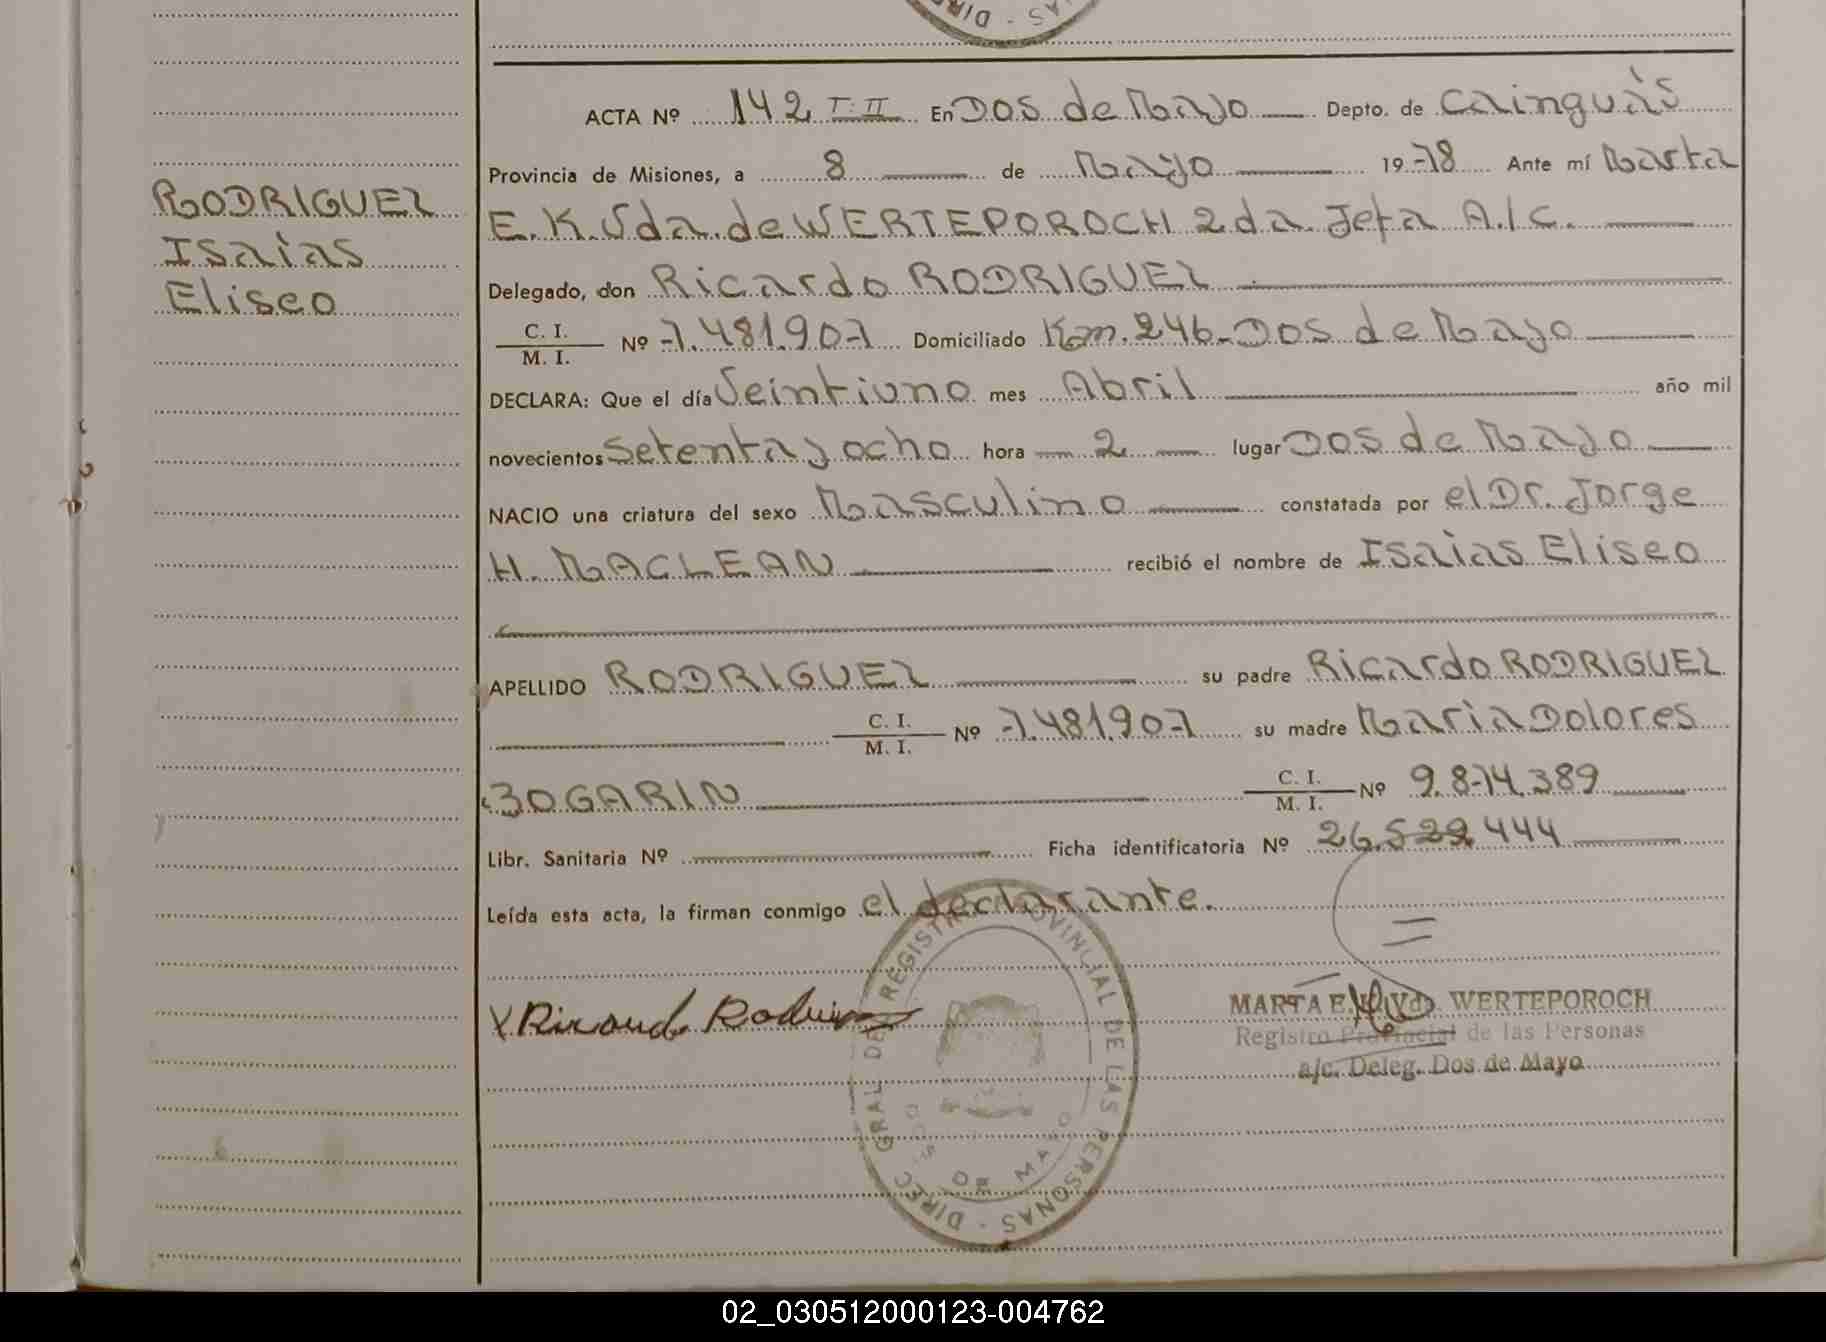 DIREC
ACTA Nº 142 T: II En Dos de Mayo Depto. de Cainguás
Provincia de Misiones, a 8 de Mayo 19 78 Ante mí Marta
E. K. Vda. de WERTEPOROCH 2da. Jefa A/C.
Delegado, don Ricardo RODRIGUEZ
C. I.
M. I. Nº 7.481.907 Domiciliado Km. 246-Dos de Mayo
DECLARA: Que el día Veintiuno mes Abril año mil
novecientos setenta y ocho hora 2 lugar Dos de Mayo
NACIO una criatura del sexo Masculino constatada por el Dr. Jorge
H. MACLEAN recibió el nombre de Isaias Eliseo
APELLIDO RODRIGUEZ su padre Ricardo RODRIGUEZ
C. I.
M. I. Nº 7.481.907 su madre Maria Dolores
BOGARIN C. I.
M. I. Nº 9.874.389
Libr. Sanitaria Nº Ficha identificatoria Nº 26.529.444
Leída esta acta, la firman conmigo el declarante.
RODRIGUEZ
Isaias
Eliseo
X Ricardo Rodriguez
DIREC GRAL DEL REGISTRO PROVINCIAL DE LAS PERSONAS -
DOS DE MAYO
MARTA E. K. Vda. WERTEPOROCH
Registro Provincial de las Personas
a/c. Deleg. Dos de Mayo
02_030512000123-004762